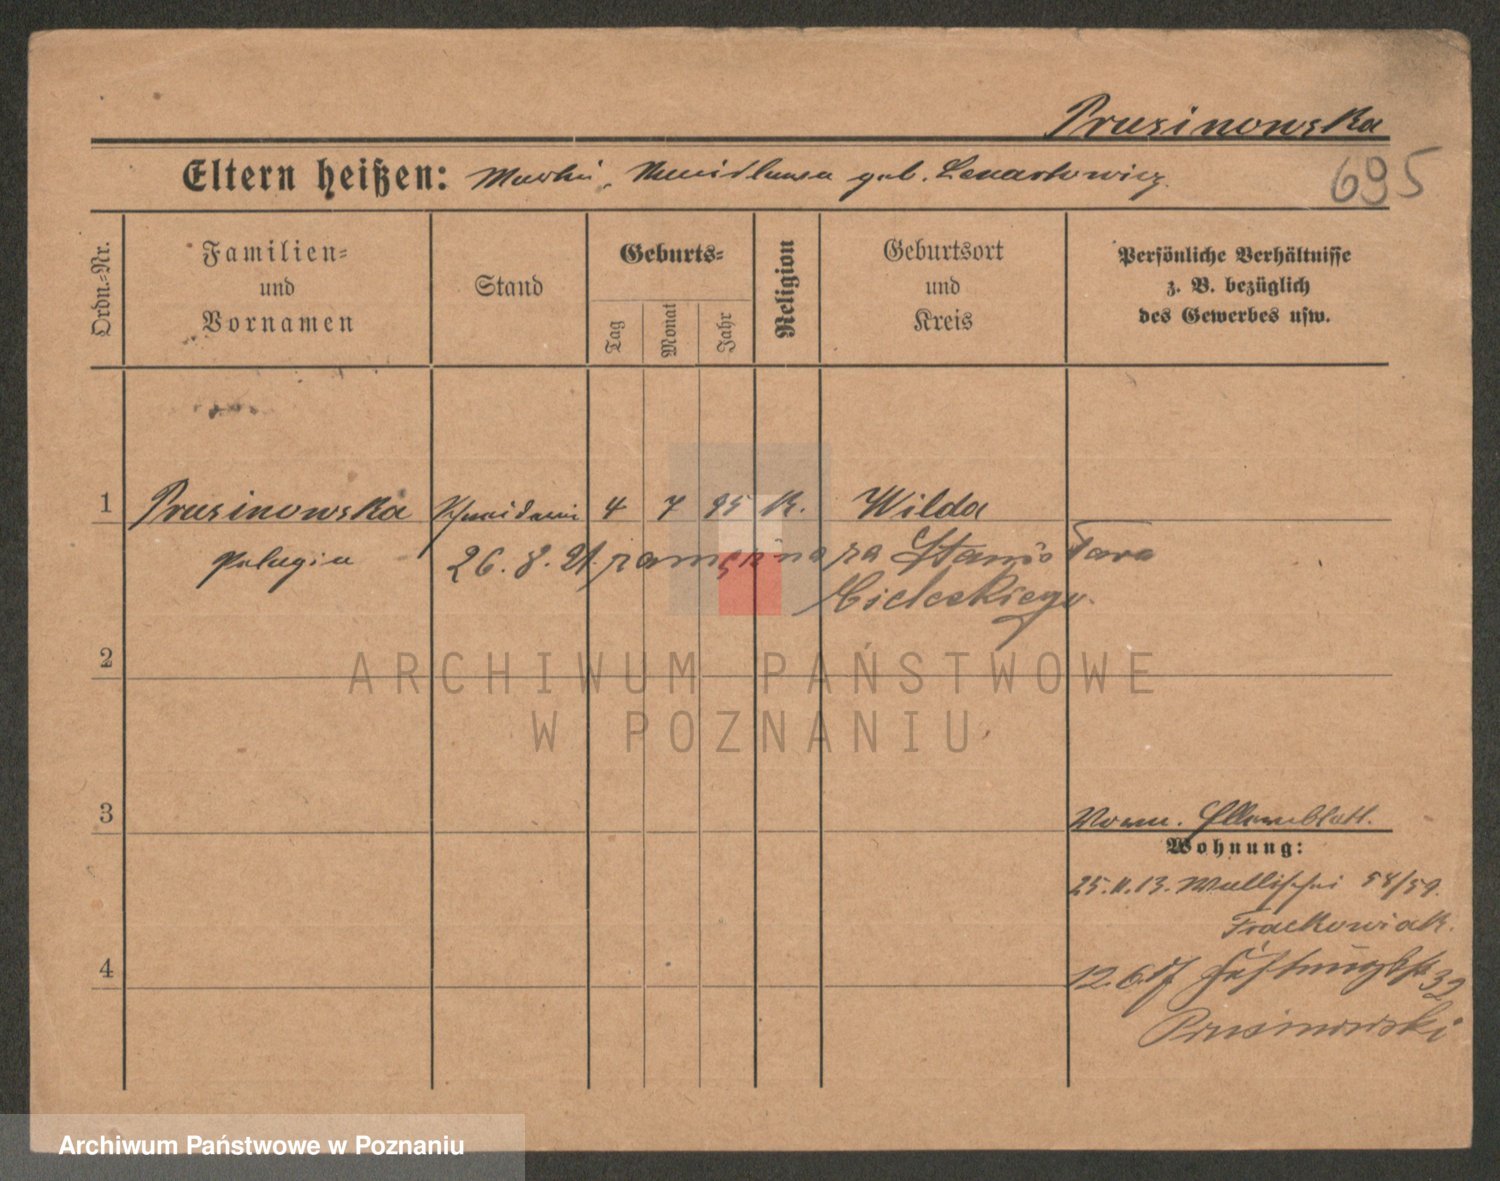 Prusinowska
695
Eltern heißen: geb. Lenartowicz.
Ordn.-Nr.
Familien- und Vornamen
Stand
Geburts-
Tag
Monat
Jahr
Religion
Geburtsort und Kreis
Persönliche Verhältnisse
z. B. bezüglich
des Gewerbes usw.
1 Prusinowska 4 7 95 K. Wilda
Pelagia 26.8.21. zamężna za Stanisława
Cieleskiego.
2
3
Elternblatt.
Wohnung:
25.11.13. Wallischei 58/59.
Frackowiak.
4
12.6.17 32
Prusinowski
ARCHIWUM PAŃSTWOWE
W POZNANIU
Archiwum Państwowe w Poznaniu